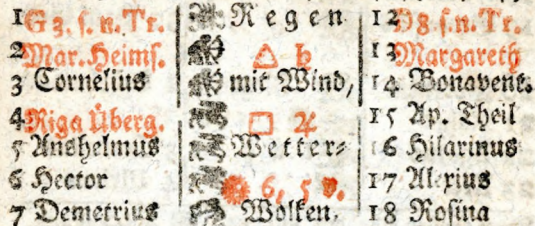 1 G 3. s. n. Tr. Regen 12 D 8. s. n. Tr.
2 Mar. Heims. △ ♄ 13 Margareth
3 Cornelius mit Wind, 14 Bonavent.
4 Riga Überg. □ ♃ 15 Ap. Theil
5 Anshelmus Wetter⸗ 16 Hilarinus
6 Hector 6, 5 v. 17 Alexius
7 Demetrius Wolken. 18 Rosina